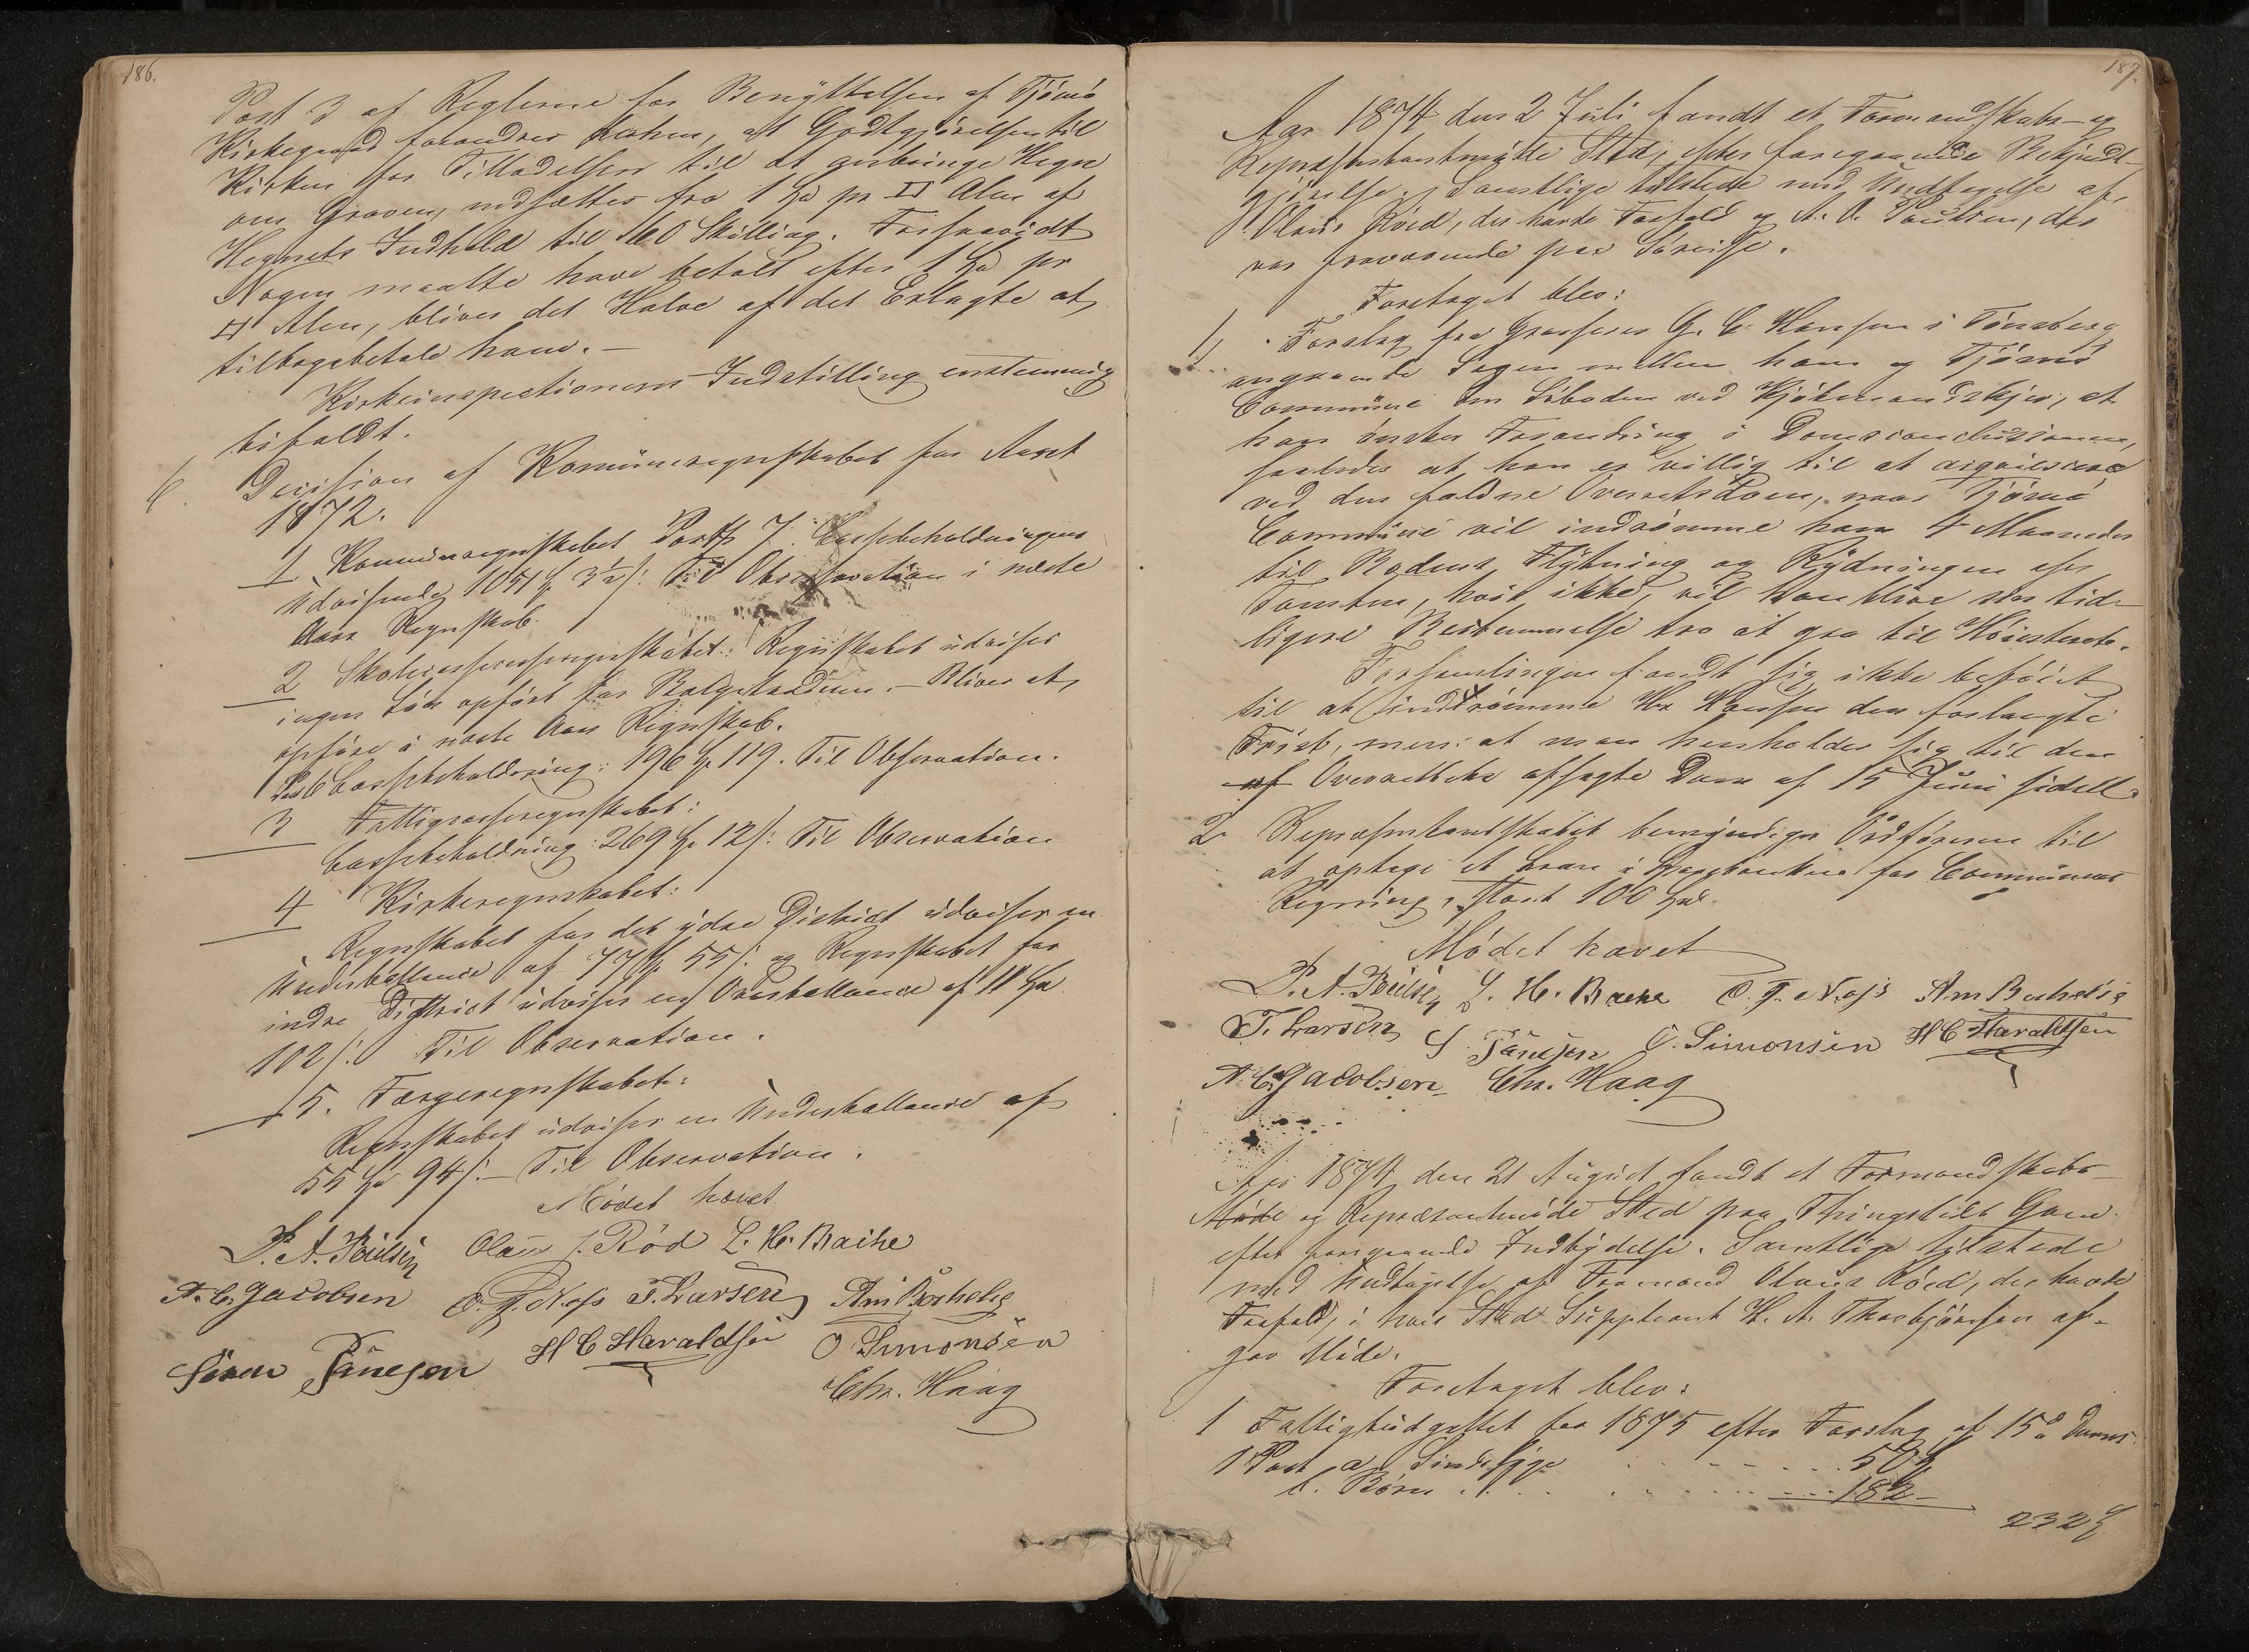 186.
Post 3 af Reglerne for Benyttelsen af Tjømø
Kirkegaard forandres saaledes, at Godtgjørelsen til
Kirken for Tilladelsen til at anbringe Hegn
om Graven, nedsættes fra 1 Spd pr □ Alen af
Hegnets Indhold til 60 Skilling. Forsaavidt
Nogen maatte have betalt efter 1 Spd pr
□ Alen, bliver det Halve af det Erlagte at
tilbagebetale ham.-
Kirkeinspectionens Indstilling enstemmig
bifaldt.
6. Decision af Komüneregnskabet for Aaret
1872.
1 Komüneregnskabet Post 7. Cassebeholdningen
üdvisende 1051 Spd 3½ s: Til Observation i næste
Aars Regnskab.
2 Skolecasseregnskabet: Regnskabet üdviser
ingen Løn opført for Bolgstadün.- Bliver at
opføre i næste Aars Regnskab.
Cassebeholdning: 196 Spd 119. Til Observation.
3 Fattigcasseregnskabet:
Cassebeholdning: 269 Spd 12 s: Til Observation
4 Kirkeregnskabet:
Regnskabet for det ydre District üdviser en
Underballance af 77 Spd 55 s: og Regnskabet for
indre District üdviser en Overballance af 11 Spd
102 s: Til Observation.
5. Færgeregnskabet:
Regnskabet üdviser en Underballance af
55 Spd 94 s:- Til Observation.
Mødet hævet
P. A. Poülsen Olaüs J. Röd L. H. Bache
N. C. Jacobsen O. G. Næss T. Larsen Am Bocheliz
Søren Pauesen H C Haraldsen O Simonsen
Chr. Haag
187.
Aar 1874 den 2 Juli fandt et Formandskabs- og
Repræsentantmøde Sted, efter foregaaende Bekjendt-
gjørelse. Samtlige tilstede med Undtagelse af
Olaüs Röed, der havde Forfald og A. O. Paulsen, der
var fraværende paa Søreise.
Foretaget blev:
1, Forslag fra Grosserer G. C. Hansen i Tönsberg
angaaende Sagen mellem ham og Tjømø
Commüne om Søboden ved Kjøbmandskjær, at
han ønsker Forandring i Domsconclusionen,
saaledes at han er villig til at acquiescere
ved den faldne Overretsdom, naar Tjømø
Commüne vil indrømme ham 4 Maaneder
til Bodens Flytning og Rydningen af
Tomten, hvis ikke, vil han blive sin tid-
ligere Bestemmelse tro at gaa til Høiesteret.
Forsamlingen fandt sig ikke beføiet
til at indrømme Hr Hansen den forlangte
Frist, men at man henholder sig til den
af Overretten afsagte Dom af 15 Juni sidstl.
2 Repræsentantskabet bemyndiger Ordføreren til
at optage et Laan i Sparebanken for Commünens
Regning, stort 100 Spd.
Mødet hævet
P. A. Poülsen L. H. Bache O. G. Næss Am Bocheliz
T. Larsen S Pauesen O. Simonsen H C Haraldsen
N. C. Jacobsen Chr. Haag
Aar 1874 den 21 August fandt et Formandskabs-
Møde og Repræsentmøde Sted paa Thingstedet Gaven
efter foregaaende Indbydelse. Samtlige tilstede
med Undtagelse af Formand Olaüs Röed, der havde
Forfald, i hvis Sted Suppleant H. A. Thorbjörnsen af-
gav Møde.
Foretaget blev:
1 Fattigbüdgettet for 1875 efter Forslag af 15de dennes.
1 Post a, Sindssyge . . . . . 50 Spd
b. Börn . . . . . 182 -
232 Spd